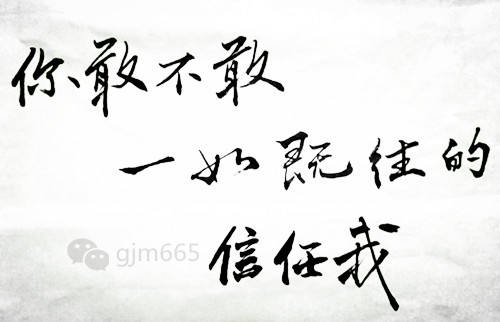 你敢不敢
一如既往的
gjm665
信任我